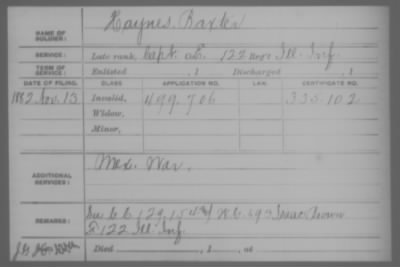 NAME OF SOLDIER: Haynes, Baxter
SERVICE: Late rank, Capt. Co. E. 122 Reg't Ill. Inf.
TERM OF SERVICE: Enlisted , 1 Discharged , 1
DATE OF FILING. CLASS APPLICATION NO. LAW. CERTIFICATE NO.
1882 Nov. 13 Invalid, 499.706 335.102
Widow,
Minor,
ADDITIONAL SERVICES: Mex. War.
REMARKS: C. 129.154 W.C. 593 Isaac
F 122 Ill. Inf.
Died , 1 , at